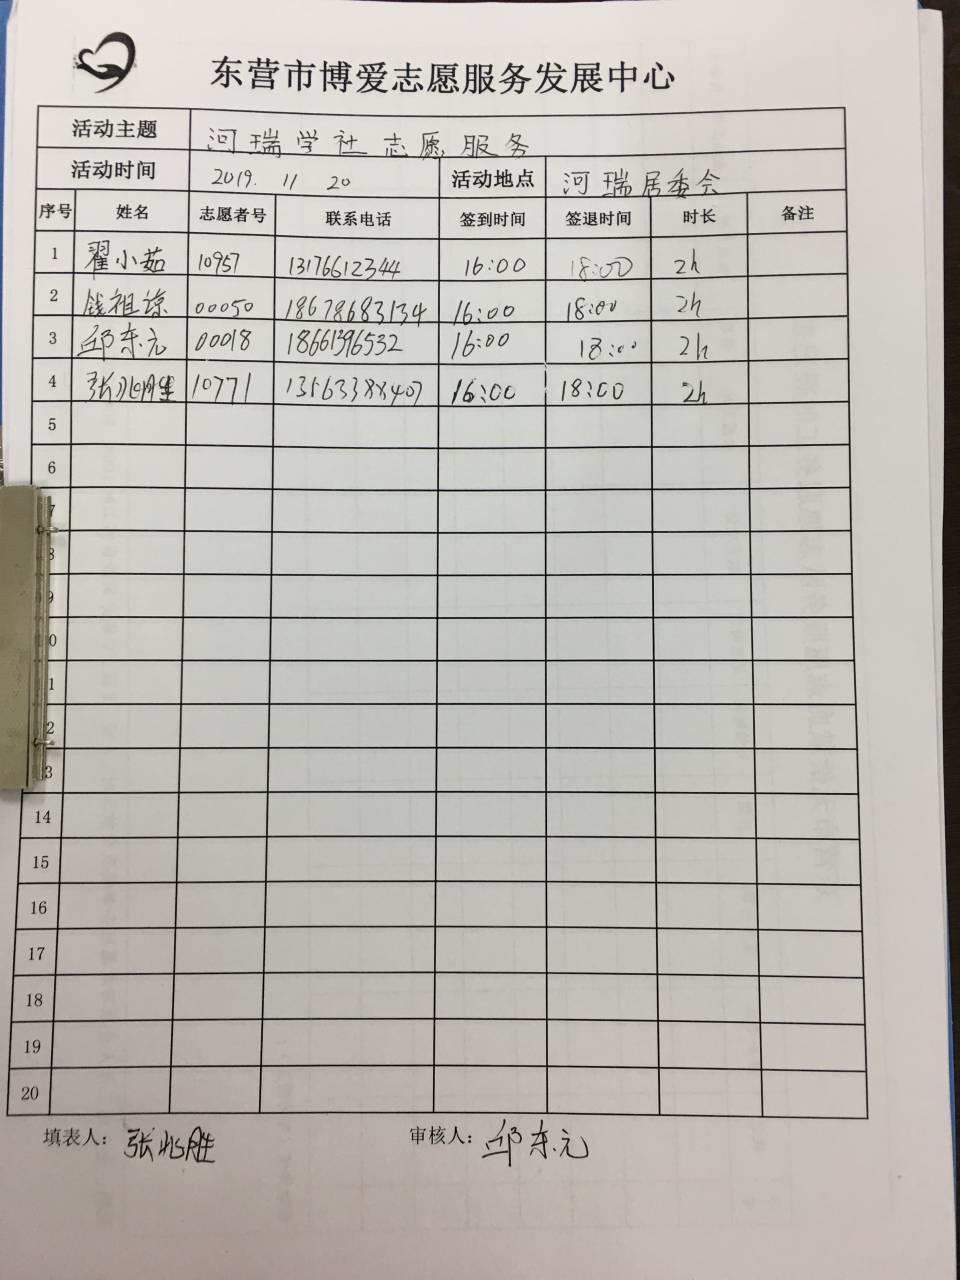 东营市博爱志愿服务发展中心
活动主题 河瑞学社志愿服务
活动时间 2019. 11 20 活动地点 河瑞居委会
序号 姓名 志愿者号 联系电话 签到时间 签退时间 时长 备注
1 翟小茹 10957 13176612344 16:00 18:00 2h
2 钱祖琼 00050 18678683134 16:00 18:00 2h
3 邱东元 00018 18661396532 16:00 18:00 2h
4 张兆胜 10771 13563388407 16:00 18:00 2h
5
6
7
8
9
0
1
2
3
14
15
16
17
18
19
20
填表人： 张兆胜 审核人： 邱东元